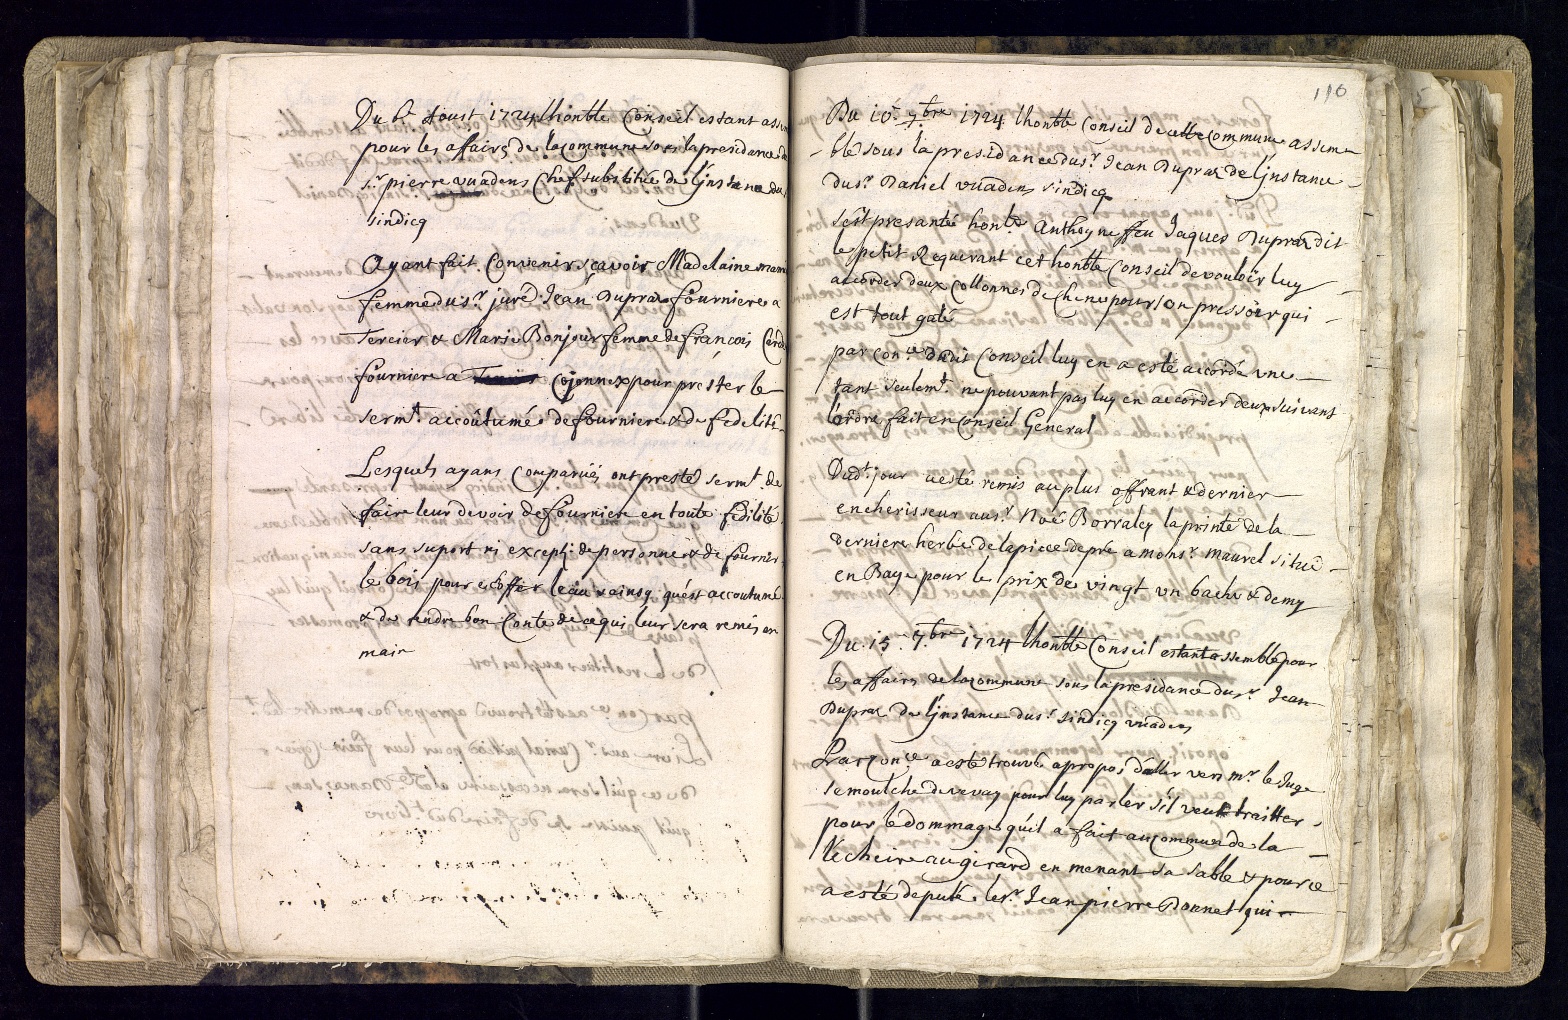 Du 6e. Aoust 1724 lhonble Conseil estant assem
pour les affaires de la commune sous la presidance du
Sr. pierre vuadens Chef substitué de l'jnstance du
sindicq
Ayant fait Convenir sçavoir Madelaine
femme du sr. juré Jean Dupraz fourniere a
Tercier & Marie Bonjour femme de françois
fourniere a Cojonnex pour prester le
sermt. accoûtumé de fourniere & de fedelité
Lesquels ayans comparües ont presté sermt. de
faire leur devoir de fourniere en toute fidilité
sans suport ni excepti: de personne & de fournir
le bois pour echoffer leau & ainsy qu'est accoutumé
& de rendre bon Conte de ce qui leur sera remis en
main
116
Du 10e. 7bre 1724 lhonble Conseil de cette Commune assem-
-blé sous la presidance du sr. Jean Dupraz de l'jnstance
du sr. Daniel vuadens sindicq
s'est presanté honle. Anthoyne ffeu Jaques Dupraz dit
le petit Requerant cet honble Conseil de vouloir luy
accorder deux collonnes de Chene pour son pressoir qui
est tout gaté
par cone. dudit Conseil luy en a esté accordé vne
tant seulemt. ne pouvant pas luy en accorder deux suivant
l'ordre fait en Conseil General
Dudt. jour a esté remis au plus offrant & dernier
encherisseur au sr. Noé Borraley la prinse de la
derniere herbe de la piece de pré a monsr. maurel situé
en Baye pour le prix de vingt vn bache & demy
Du. 15. 7bre 1724 lhonble Conseil estant assemblé pour
les affaires de la commune sous la presidance du sr. Jean
Dupraz de l'jnstance du sr. sindicq vuadens
Par Cone a esté trouvé apropos d'aller vers mr. le Juge
de vevay pour luy parler s'il veut traitter
pour le dommage qu'il a fait au commun de la
Vecheire au girard en menant sa sable & pour ce
a esté deputé le sr. Jean pierre Bonnet qui